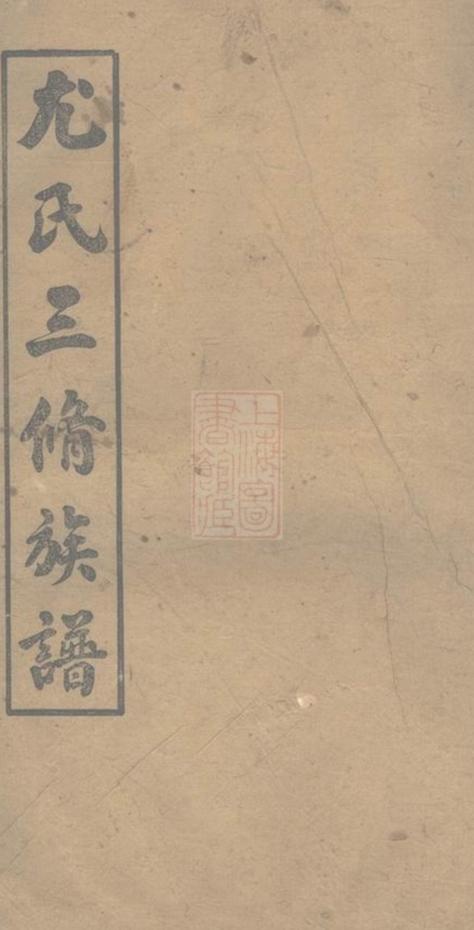 尤氏三脩族譜
上海圖
書館藏